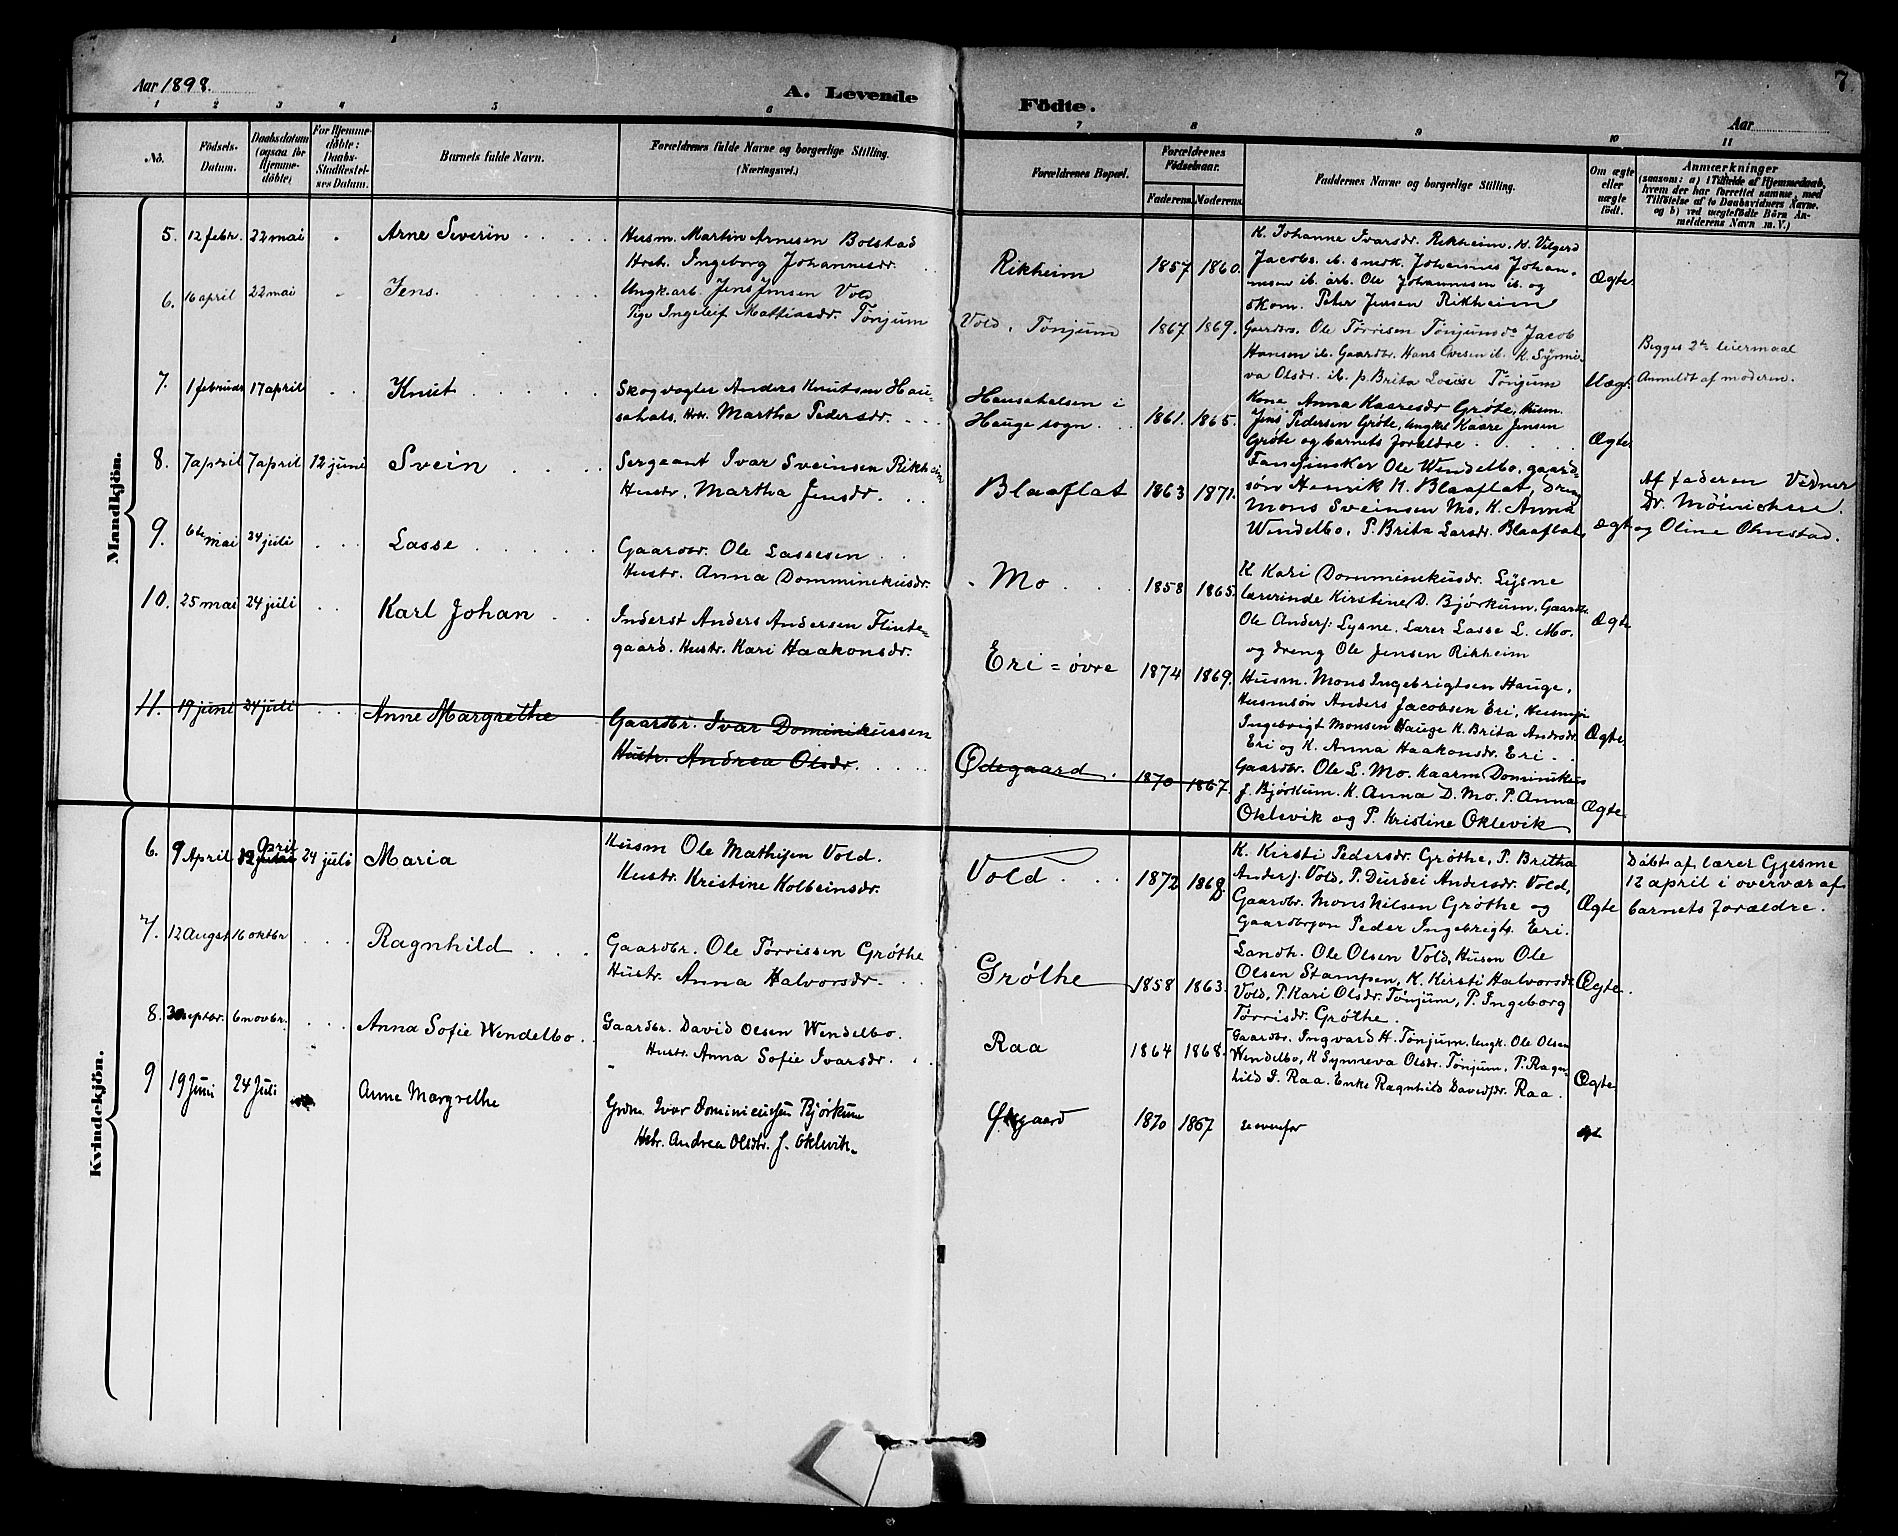 7
Aar 1898.
A. Levende Födte.
Aar
1 2 3 4 5 6 7 8 9 10 11
No.
Födsels-Datum.
Daabsdatum (ogsaa for Hjemmedøbte)
For Hjemmedøbte: Daabs-Stadfestelses Datum.
Barnets fulde Navn.
Forældrenes fulde Navne og borgerlige Stilling. (Næringsvei.)
Forældrenes Bopæl.
Forældrenes Födselsaar.
Faderens. Moderens.
Faddernes Navne og borgerlige Stilling.
Om ægte eller uægte födt.
Anmærkninger
(saasom: a) i Tilfælde af Hjemmedaab, hvem der har forrettet samme, med Tilföielse af to Daabsvidners Navne. og b) ved uægtefödte Börn Anmelderens Navn m. V.)
Mandkjön.
5. 12 febr. 22 mai Arne Severin
Husm. Martin Arnesen Bolstad
Hstr. Ingeborg Johannesdr.
Rikheim 1857 1860.
K. Johanne Ivarsdr. Rikheim. K. Vilgerd
Jacobs. ib. smedk. Johannes Johan-
nesen ib. arb. Ole Johannesen ib. og
skom. Peter Jensen Rikheim
Ægte
6. 16 april 22 mai Jens.
Ungk. arb. Jens Jensen Vold
Pige Ingeleif Mathiasdr. Tönjum
Vold. Tönjum 1867 1869.
Gaardbr. Ole Tørrisen Tönjum Jacob
Hansen ib. Gaardbr. Hans Ovesen ib. K. Synne-
va Olsdr. ib. p. Brita Lovise Tönjum
Uægt.
Begges 2det leiermaal
Anmeldt af moderen.
7. 1 februar 17 april Knut
Skogvogter Anders Knutsen Hau-
sahals. Hstr. Martha Pedersdr.
Hausahalsen i
Hauge sogn. 1861. 1865.
Kone Anna Kaaresdr Grøte, Husm.
Jens Pedersen Grøte, ungkl Kaare Jensen
Grøte og barnets forældre.
Ægte
8. 7 april 7 april 12 juni Svein
Sergeant Ivar Sveinsen Rikheim
Hustr. Martha Jensdr.
Blaaflat 1863 1871.
Ole Wendelbo, gaard-
søn Henrik H. Blaaflat, Dreng
Mons Sveinsen Mo, K. Anna
Wendelbo, P. Brita Larsdr. Blaaflat
ægt
Af faderen Vidner
Dr. Møinichen
og Oline Olmstad.
9. 6te mai 24 juli Lasse
Gaardbr. Ole Lassesen
Hustr. Anna Domminekusdr.
Mo 1858 1865.
K Kari Domminekusdr. Lysne
lærerinde Kirstine D. Bjørkum. Gaardbr.
Ole Anders. Lysne. Lærer Lasse L. Mo.
og dreng Ole Jensen Rikheim
Ægte
10. 25 mai 24 juli Karl Johan
Inderst Anders Andersen Flinte-
gaard. Hustr. Kari Haakonsdr.
Eri = øvre 1874 1869.
Husm. Mons Ingebrigtsen Hauge.
Husmsøn Anders Jacobsen Eri, Husmsøn
Ingebrigt Monsen Hauge K. Brita Andrsdr.
Eri og K. Anna Haakonsdr. Eri.
Ægte
11. 19 juni 24 juli Anne Margrethe
Gaardbr. Ivar Dominikussen
Hustr. Andrea Olsdr.
Ødegaard. 1870 1867.
Gaardbr. Ole L. Mo. Kaarm Dominikus
J. Bjørkum. K. Anna D. Mo. P. Anna
Oklevik og P. Kristine Oklevik
Ægte
Kvindekjön.
6. 9 April 12 april 24 juli Maria
Husm Ole Mathisen Vold.
Hustr. Kristine Kolbeinsdr.
Vold 1872 1868.
K. Kirsti Pedersdr. Grøthe, P. Britha
Anders. Vold, P. Durdei Andersdr. Vold,
Gaardbr. Mons Nilsen Grøthe og
Gaardbrsøn Peder Ingebrigts. Eri.
Ægte
Døbt af lærer Gjesme
12 april i overvær af
barnets forældre.
7. 12 Augst 16 oktbr Ragnhild
Gaardbr. Ole Tørrissen Grøthe
Hustr. Anna Halvorsdr.
Grøthe 1858 1863.
Landh. Ole Olsen Vold, Husm Ole
Olsen Stampen, K. Kirsti Halvorsdr.
Vold, P. Kari Olsdr. Tönjum, P. Ingeborg
Tørrisdr. Grøthe.
Ægte.
8. 30 septbr. 6 novbr. Anna Sofie Wendelbo
Gaardbr. David Olsen Wendelbo.
Hustr. Anna Sofie Ivarsdr.
Raa 1864 1868.
Gaardbr. Ingvard H. Tönjum. Ungk. Ole Olsen
Wendelbo, K Synneva Olsdr. Tönjum, P. Ragn-
hild I. Raa. Enke Ragnhild Davidsdr. Raa.
Ægte
9 19 Juni 24 Juli Anne Margrethe
Grdm. Ivar Dominicussen Bjørkum
Hstr. Andrea Olsdtr. f. Oklevik.
1870 1867 se ovenfor
ægt